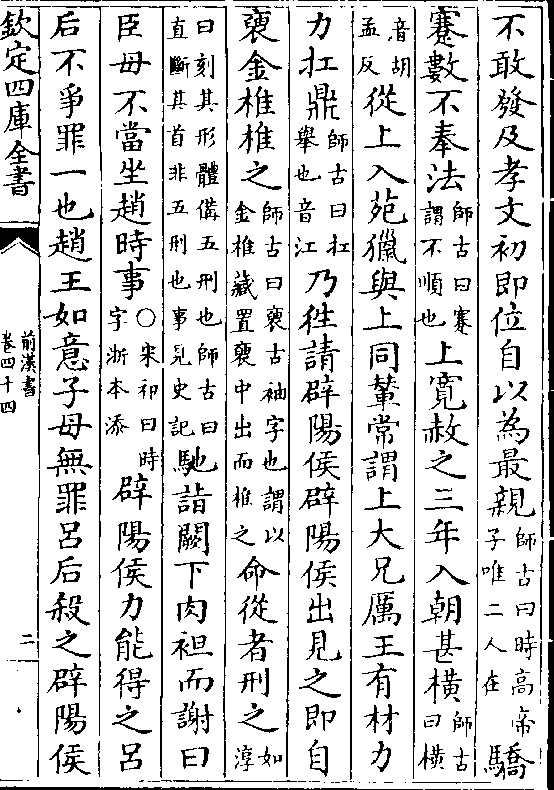 不敢發及孝文初即位自以為最親師古曰時高帝子唯二人在驕
蹇數不奉法師古曰蹇謂不順也上寛赦之三年入朝甚橫師古曰橫
音胡孟反從上入苑獵與上同輦常謂上大兄厲王有材力
力扛鼎師古曰扛舉也音江乃徃請辟陽侯辟陽侯出見之即自
褏金椎椎之師古曰褏古袖字也謂以金椎藏置褏中出而椎之命從者刑之如淳
曰刻其形體備五刑也師古曰直斷其首非五刑也事見史記馳詣闕下肉袒而謝曰
臣母不當坐趙時事○宋祁曰時字浙本添辟陽侯力能得之呂
后不爭罪一也趙王如意子母無罪呂后殺之辟陽侯
欽定四庫全書
前漢書
卷四十四
二